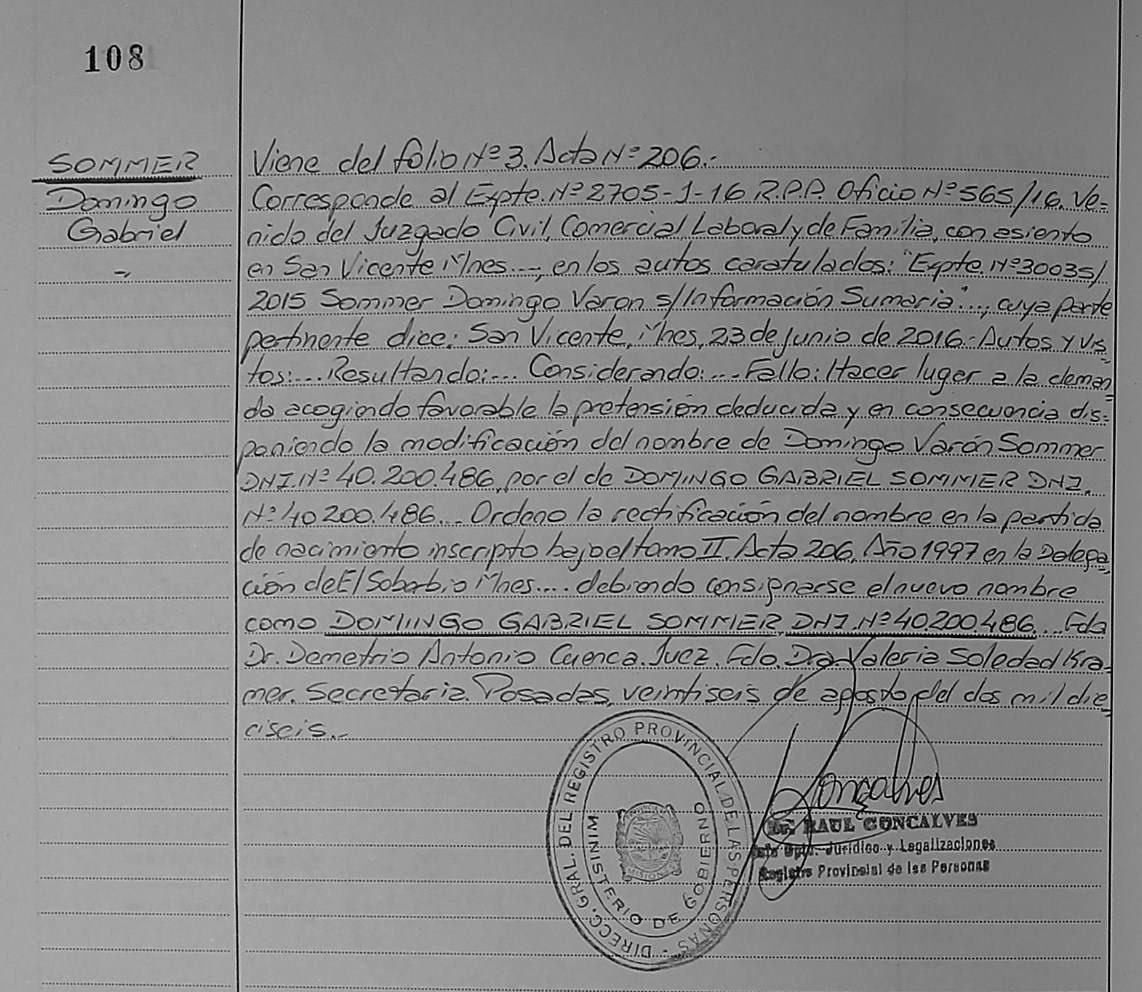 108
SOMMER
Domingo
Gabriel
Viene del folio Nº 3. Acta Nº 206.-
Corresponde al Expte. Nº 2705-1-16 R.P.P. Oficio Nº 565/16. Ve=
nido del Juzgado Civil, Comercial, Laboral y de Familia, con asiento
en San Vicente Mnes..., en los autos caratulados: "Expte. Nº 30035/
2015 Sommer Domingo Varon s/Información Sumaria"..., cuya parte
pertinente dice: San Vicente, Mnes, 23 de Junio de 2016.- Autos y vis
tos:... Resultando:... Considerando:... Fallo: Hacer lugar a la deman
da acogiendo favorable la pretensión deducida y en consecuencia dis=
poniendo la modificación del nombre de Domingo Varón Sommer
DNI. Nº 40.200.486, por el de DOMINGO GABRIEL SOMMER DNI.
Nº 40.200.486... Ordeno la rectificación del nombre en la partida
de nacimiento inscripto bajo el tomo II. Acta 206, Año 1997 en la Delega
ción de El Soberbio Mnes.... debiendo consignarse el nuevo nombre
como DOMINGO GABRIEL SOMMER DNI. Nº 40.200.486... Fdo
Dr. Demetrio Antonio Cuenca. Juez. Fdo. Dra. Valeria Soledad Kra-
mer. Secretaria. Posadas, veintiseis de agosto del dos mil die
ciseis.-
DIRECC. GRAL. DEL REGISTRO PROVINCIAL DE LAS PERSONAS
MINISTERIO DE GOBIERNO
MISIONES
Gonçalves
Dr. RAUL GONCALVES
Jefe Dpto. Jurídico y Legalizaciones
Registro Provincial de las Personas